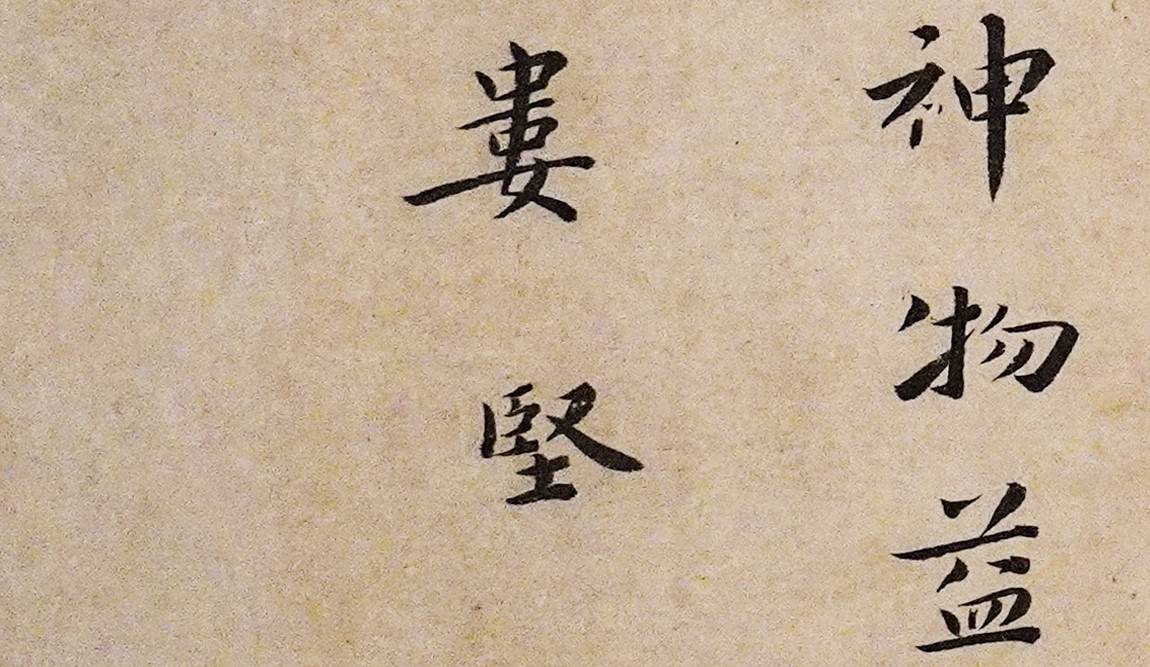 神物益
婁堅